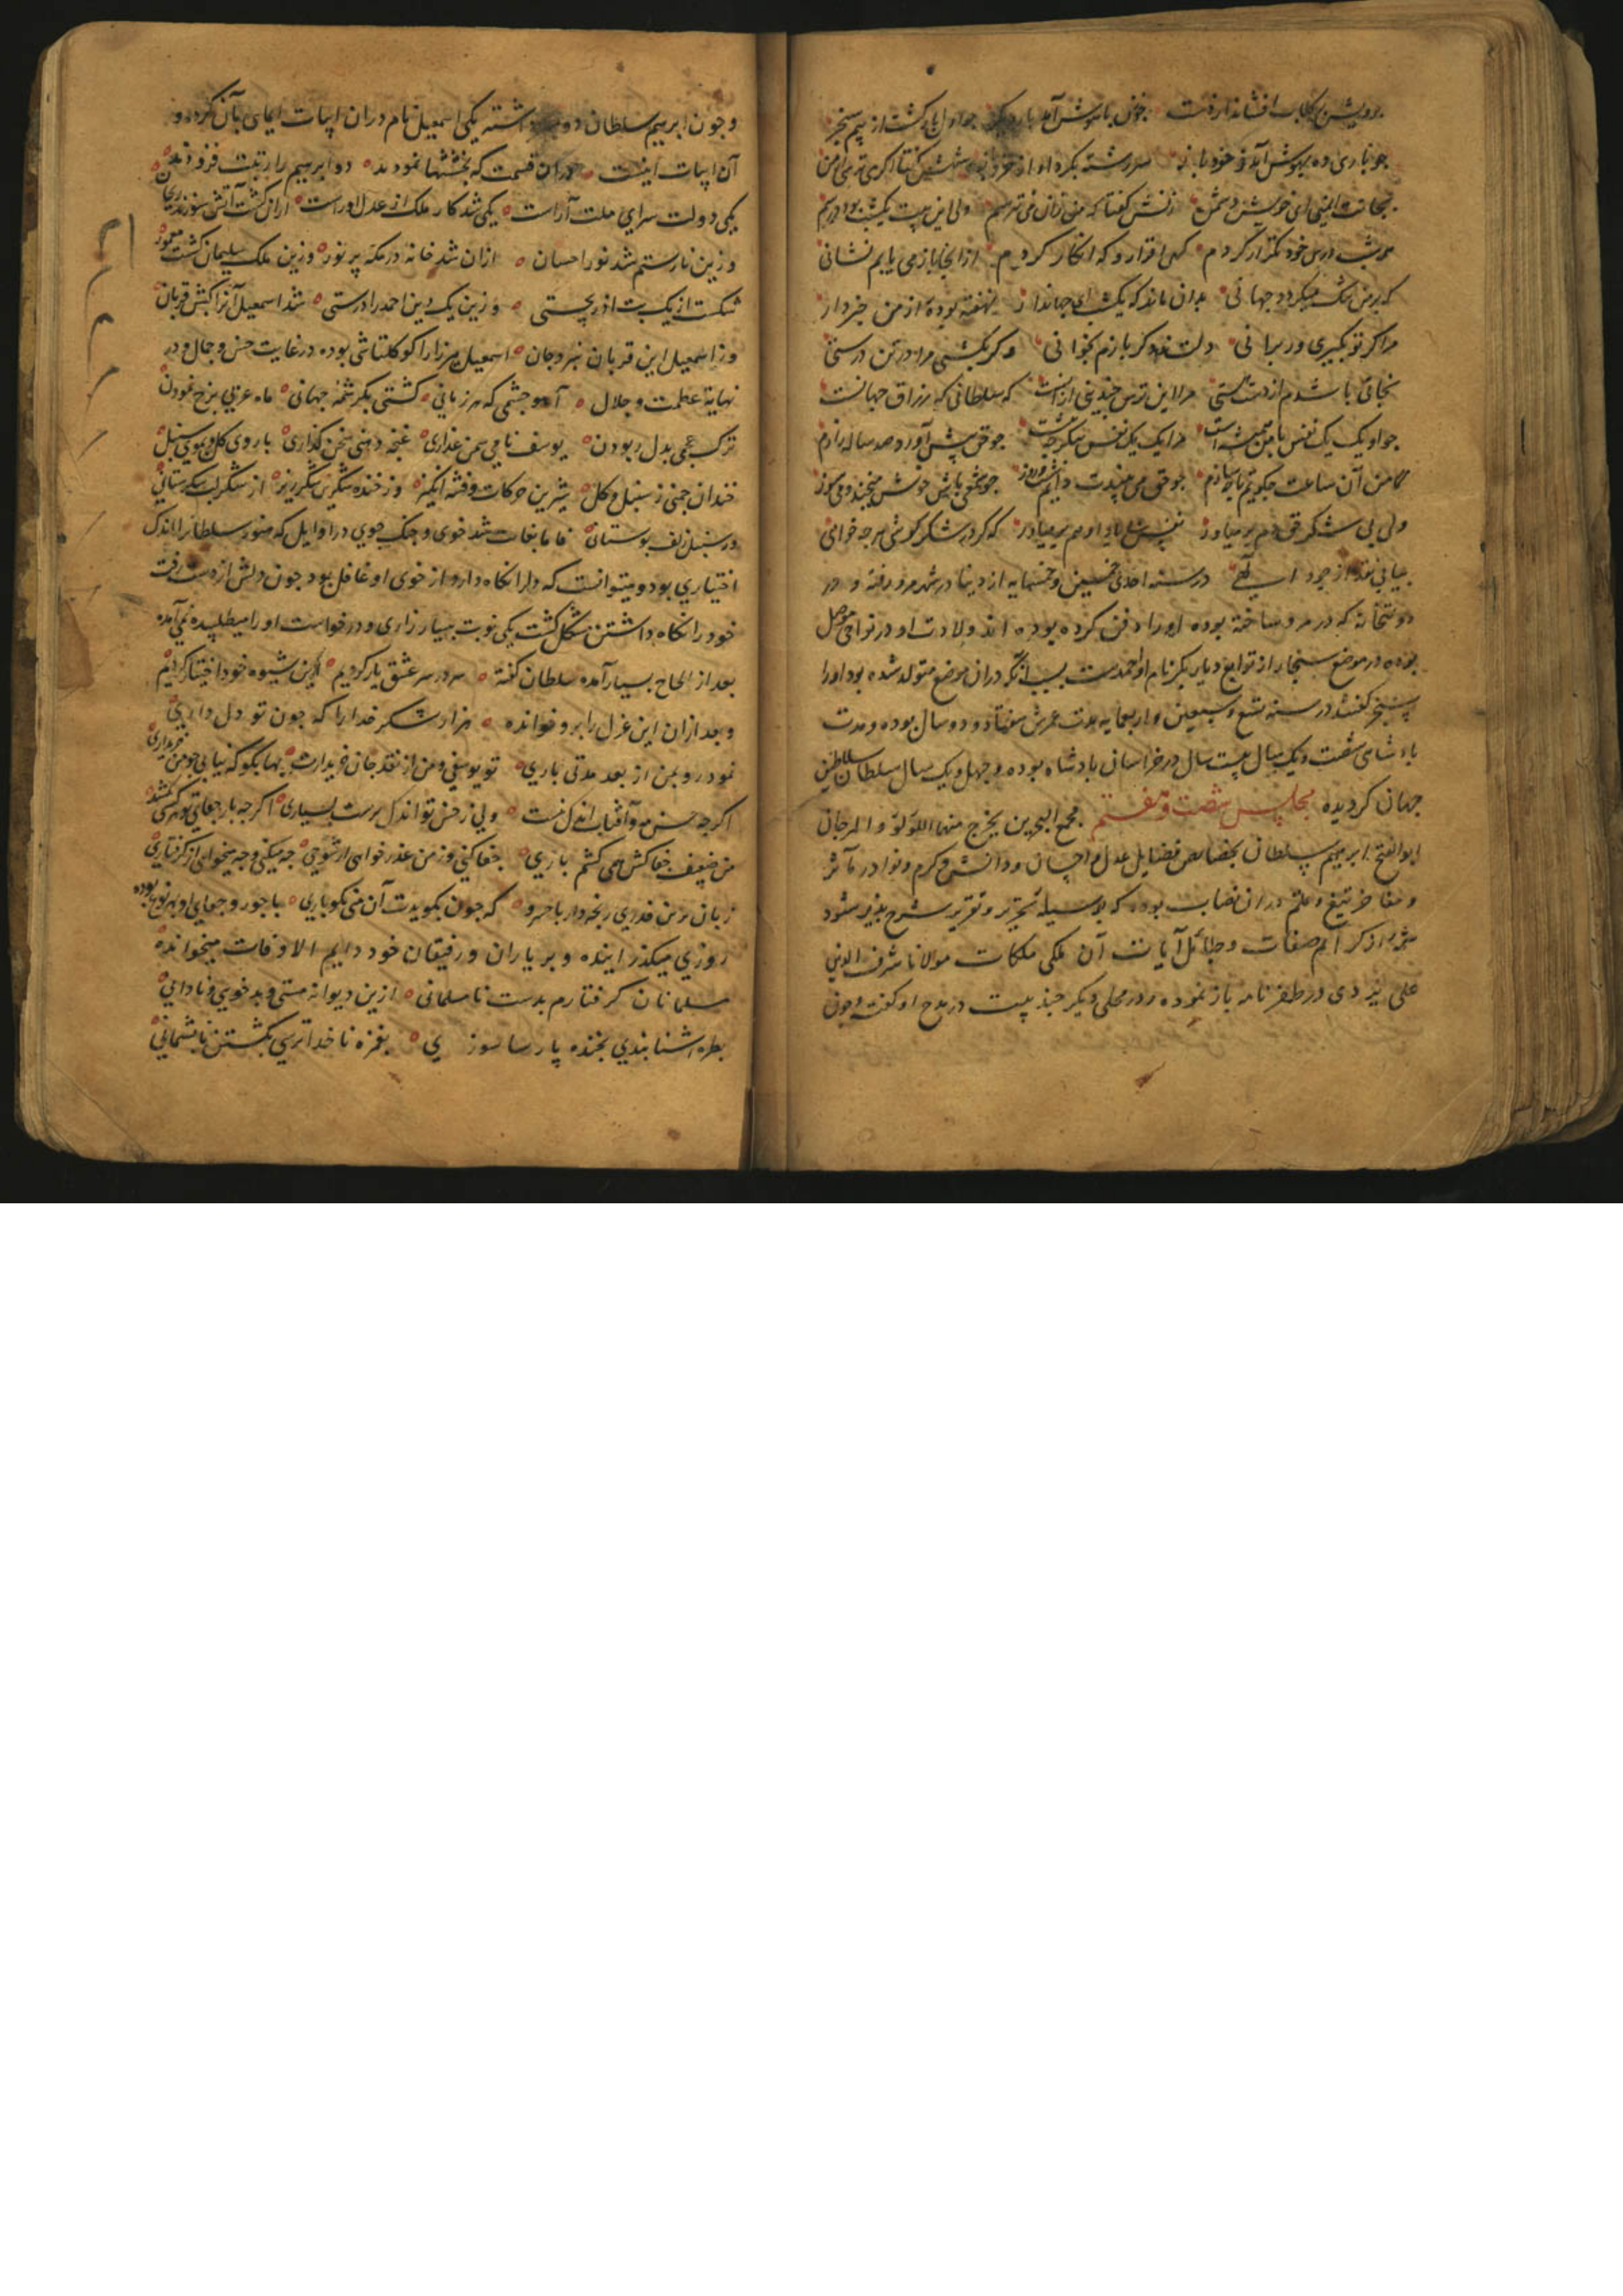 برویش بر گلاب افشاند از رفت چون باهوش آمد بار دیگر جو اول باز گشت از بیم سنجر
جو باری ده بهوش آمد ز خود باز سر رشته بکرد او از خود
نجات ایمنی ای خویش و دشمن زنش گفتا که من زان می ترسم ولی این بیت یکشب بود درسم
هر شب درس خود تکرار کردم کهی اقرار و که انکار کردم از اینجا باز می یابم نشانی
که بر من شک میکردد جهانی بدان ماند که یکشب ای جهاندار نهفته بوده از من خبردار
مرا کر تو بگیری ور برانی دلت ندهد کر بازم بخوانی و کر بکشی مرا در تن درستی
نجاتی باشدم از دست هستی مرا این ترس چندینی از آنست که سلطانی که رزاق جهانست
جو او یک یک نفس با من همیشه است مرا یک یک نفس جو حق پیش آورد صد ساله رازم
کا من آن ساعت جکویم یا چه سازم جو حق می بیندت دایم شب و روز جو شمعی باش خوش میخند و می سوز
ولی بی شکر حق دم بر میاور نفس بی یاد او هم بر میاور که کر در شکر کوشی هر چه خواهی
بیابی نقد از جود الهی در سنه احدی خمسین و خمسمایه از دنیا در شهر مرو رفته و در
دولتخانه که در مرو ساخته بوده او را دفن کرده بوده اند ولادت او در نواحی موصل
بوده در موضع سنجار از توابع دیار بکر نام او احمدست بسبب آنکه در آن موضع متولد شده بود او را
سنجر کفتند در سنه تسع و سبعین و اربعمایه مدت عمرش هفتاد و دو سال بوده و مدت
پادشاهی شصت و یک سال بیست سال در خراسان پادشاه بوده و چهل و یک سال سلطان سلاطین
جهان کردیده مجلس شصت و هفتم مجمع البحرین یخرج منهما اللؤلؤ و المرجان
ابوالفتح ابرهیم سلطان بخصایص فضایل عدل و احسان و دانش و کرم و نوادر مآثر
و مفاخر تیغ و قلم در آن نصاب بوده که بوسیله تحریر و تقریر شرح پذیر شود
شمّه از کرایم صفات و جلائل آیات آن ملکی ملکات مولانا شرف الدین
علی یزدی در ظفر نامه باز نموده و در محلی دیگر چند بیت در مدح او کفته و چون
و جون ابرهیم سلطان دو داشته یکی اسمعیل نام در آن ابیات ایمای بآن کرده و
آن ابیات اینست در آن قسمت که بخششها نمودند دو ابرهیم را رتبت فزودند
یکی دولت سرای ملت آراست یکی شد کار ملک از عدل او راست از آن کشت آتش سوزنده ریحان
و زین نار ستم شد نور احسان از آن شد خانه در مکه پر نور و زین ملک سلیمان کشت معمور
شکست از یک بت آذر بچستی و زین یک دین احمد را درستی شد اسمعیل آنرا کبش قربان
وز اسمعیل این قربان سر و جان اسمعیل میرزا را کوکلتاشی بوده در غایت حسن و جمال و در
نهایة عظمت و جلال آهو چشمی که هر زمانی کشتی بکرشمهٔ جهانی ماه عربی برخ نمودن
ترک عجمی بدل ربودن یوسف نامی سمن عذاری غنچه دهنی سخن گذاری با روی کل و موی سنبل
خندان چمنی ز سنبل و کل شیرین حرکات و فتنه انکیز وز خنده شکرین شکرریز از شکر لب شکرستانی
در سنبل زلف بوستانی فاما بغایت تند خوی و جنک جوی در اوایل که هنوز سلطانرا اندک
اختیاری بود و میتوانست که دلرا نکاه دارد از خوی او غافل بود جون دلش از دست رفت
خود را نکاه داشتن مشکل کشت یکی نوبت بسیار زاری و درخواست او را میطلبیده نمی آمده
بعد از الحاح بسیار آمده سلطان کفته سر در سر عشق یار کردیم این شیوه خود اختیار کردیم
و بعد از آن این غزل را برو خوانده هزار شکر خدا را که جون تو دل داری
نمود رو بمن از بعد مدتی باری تو یوسفی و من از نقد جان خریدارت بها بکو که نیابی جو من خریداری
اگر چه حسن مه و آفتاب اندک نیست ولی ز حسن تو اندک برست بسیاری اگر چه بار جفای تو هر کسی نکشد
من ضعیف جفاکش همی کشم باری جفا کنی و ز من عذر خواهی از شوخی چه میکنی و چه میخواهی از گرفتاری
زبان بر من قدری رنجه دار با خسرو که جون بکویدت آن منی بکو باری با جور و جفای او بهر نوع بوده
روزی میگذرانیده و بر یاران و رفیقان خود دایم الاوقات میخوانده
مسلمانان گرفتارم بدست نامسلمانی ازین دیوانه مستی و بدخویی و نادانی
بطره آشنا بندی بخنده پارسا سوزی بغمزه ناخدا ترسی بکشتن ناپشیمانی